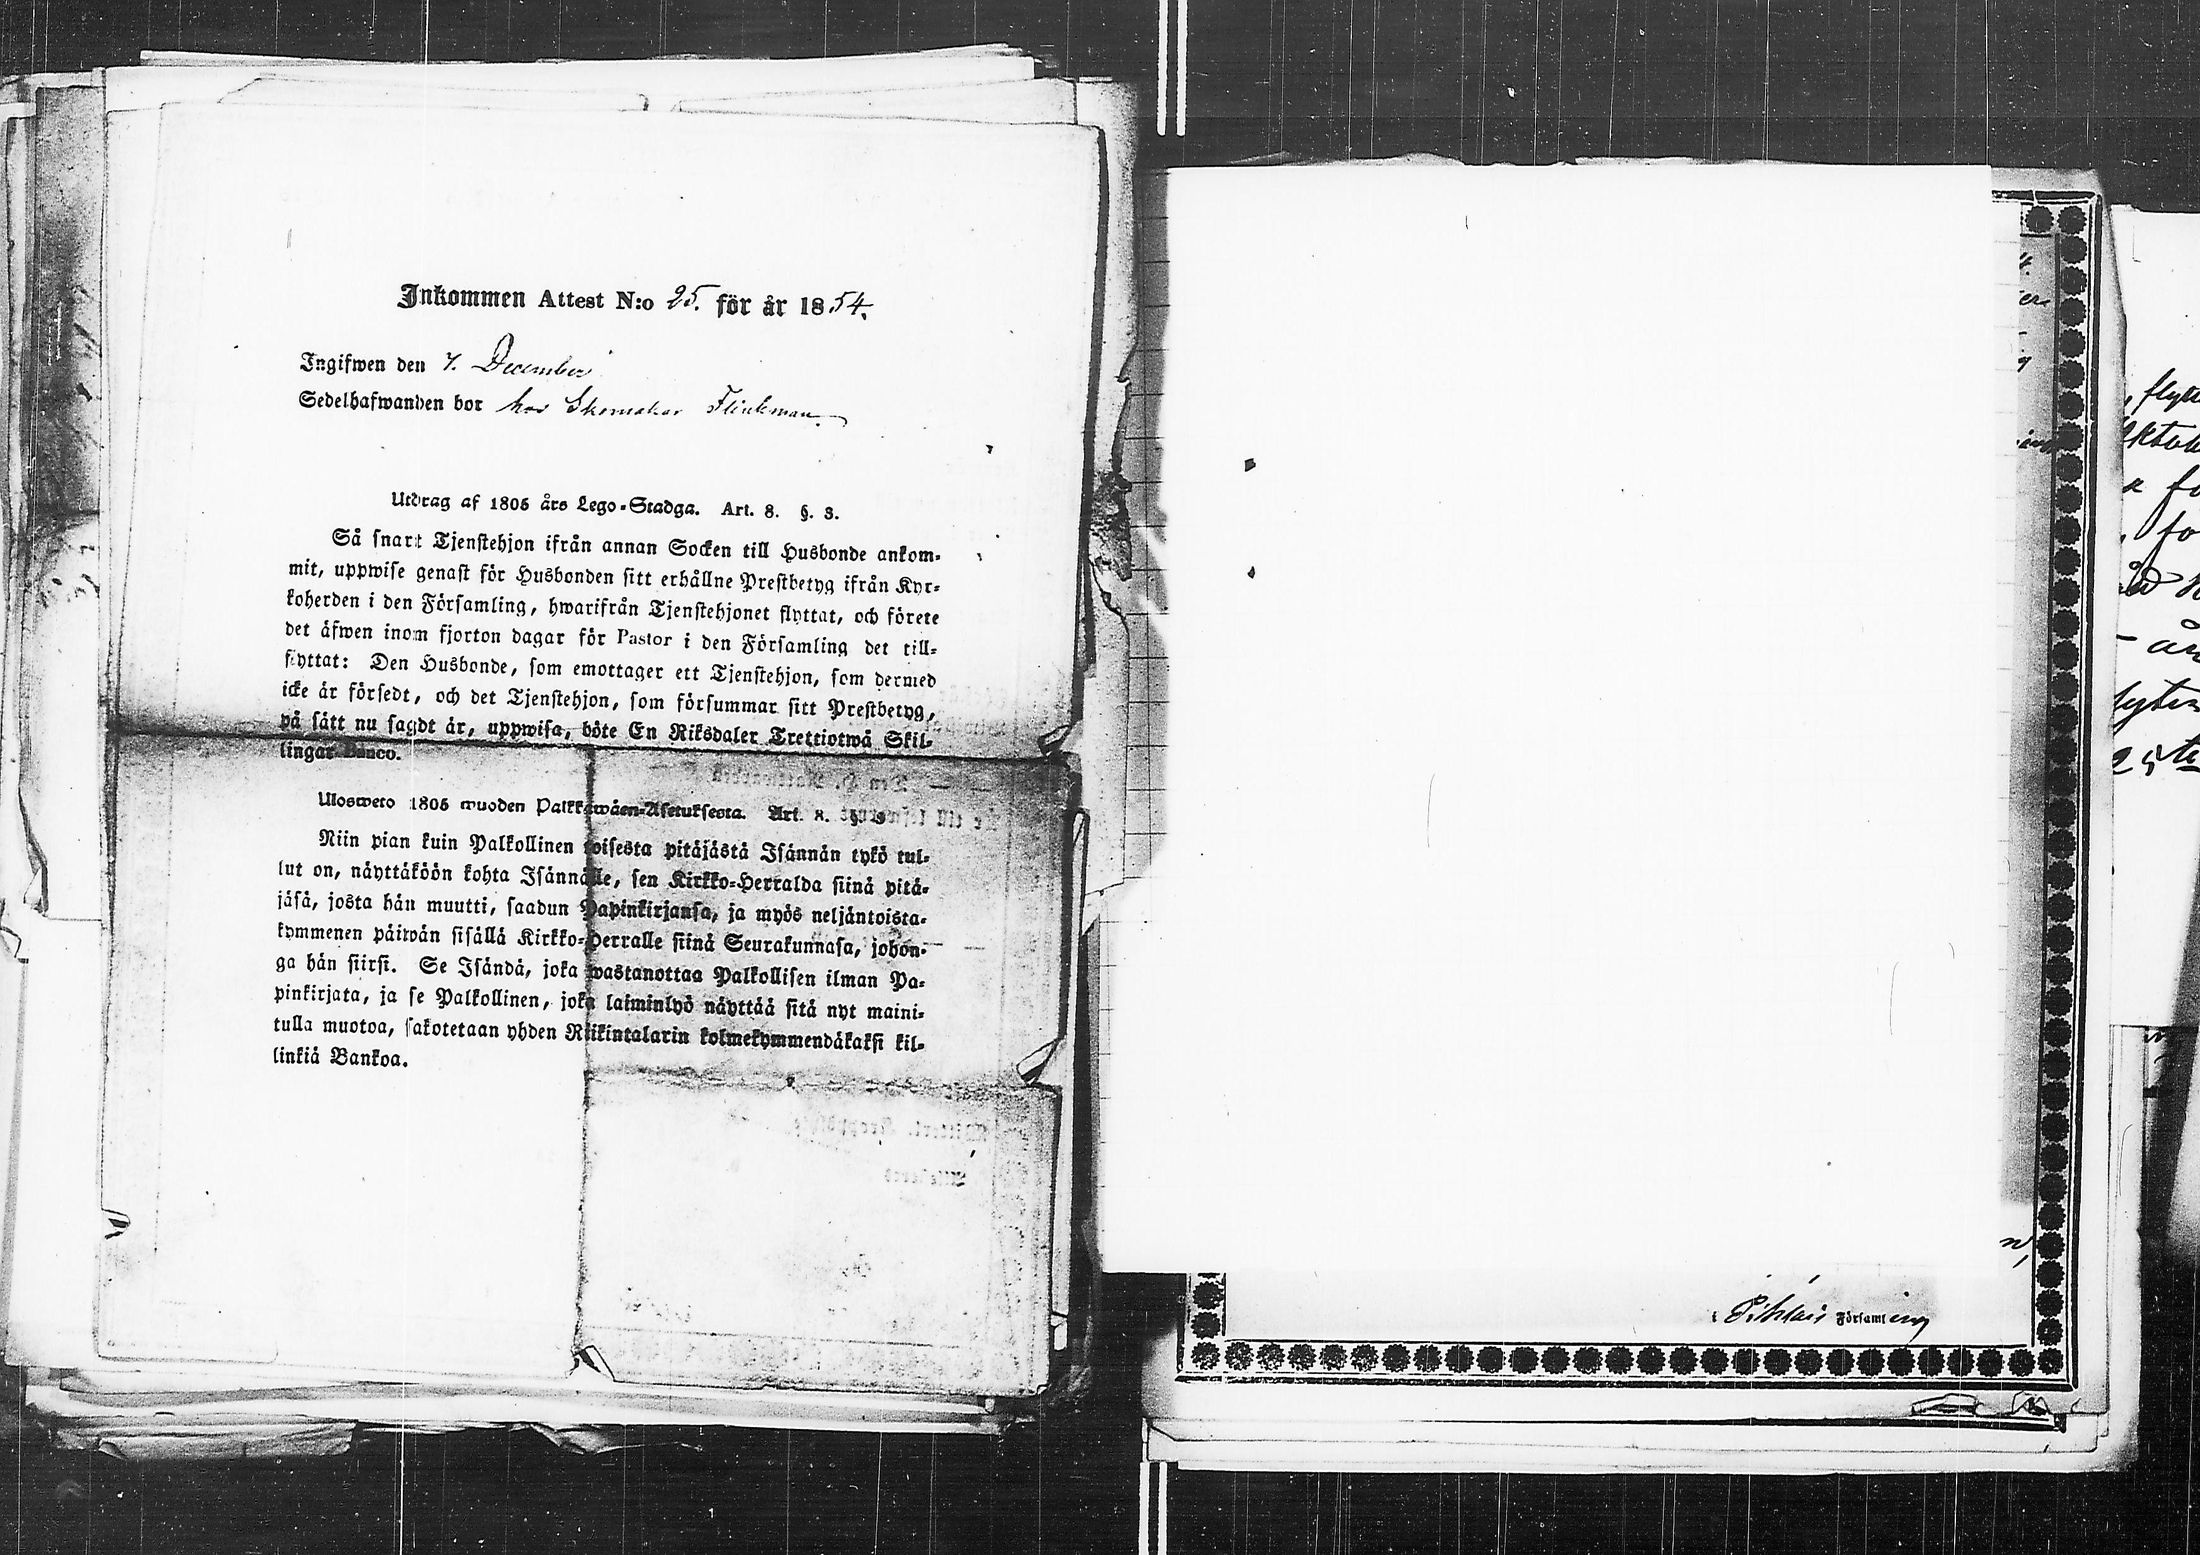 Inkommen Attest N:o 25. för år 1854.
Ingifwen den 7. December
Sedelhafwanden bor hos Skomakar Flinkman.
Utdrag af 1805 års Lego-Stadga. Art. 8. §. 3.
Så snart Tjenstehjon ifrån annan Socken till Husbonde ankom-
mit, uppwise genast för Husbonden sitt erhållne Prestbetyg ifrån Kyr-
koherden i den Församling, hwarifrån Tjenstehjonet flyttat, och förete
det äfwen inom fjorton dagar för Pastor i den Församling det till-
flyttat: Den Husbonde, som emottager ett Tjenstehjon, som dermed
icke är försedt, och det Tjenstehjon, som försummar sitt Prestbetyg,
på sätt nu sagdt är, uppwisa, böte En Riksdaler Trettiotwå Skil-
lingar Banco.
Ulosweto 1805 wuoden Palkkawäen-Asetuksesta. Art. 8. §. 3
Niin pian kuin Palkollinen toisesta pitäjästä Isännän tykö tul-
lut on, näyttäköön kohta Isännälle, sen Kirkko-Herralda siinä pitä-
jäsä, josta hän muutti, saadun Papinkirjansa, ja myös neljäntoista-
kymmenen päiwän sisällä Kirkko-Herralle siinä Seurakunnasa, johon-
ga hän siirsi. Se Isändä, joka wastanottaa Palkollisen ilman Pa-
pinkirjata, ja se Palkollinen, joka laiminlyö näyttää sitä nyt maini-
tulla muotoa, sakotetaan yhden Riikintalarin kolmekymmendäkaksi kil-
linkiä Bankoa.
Församling
25te